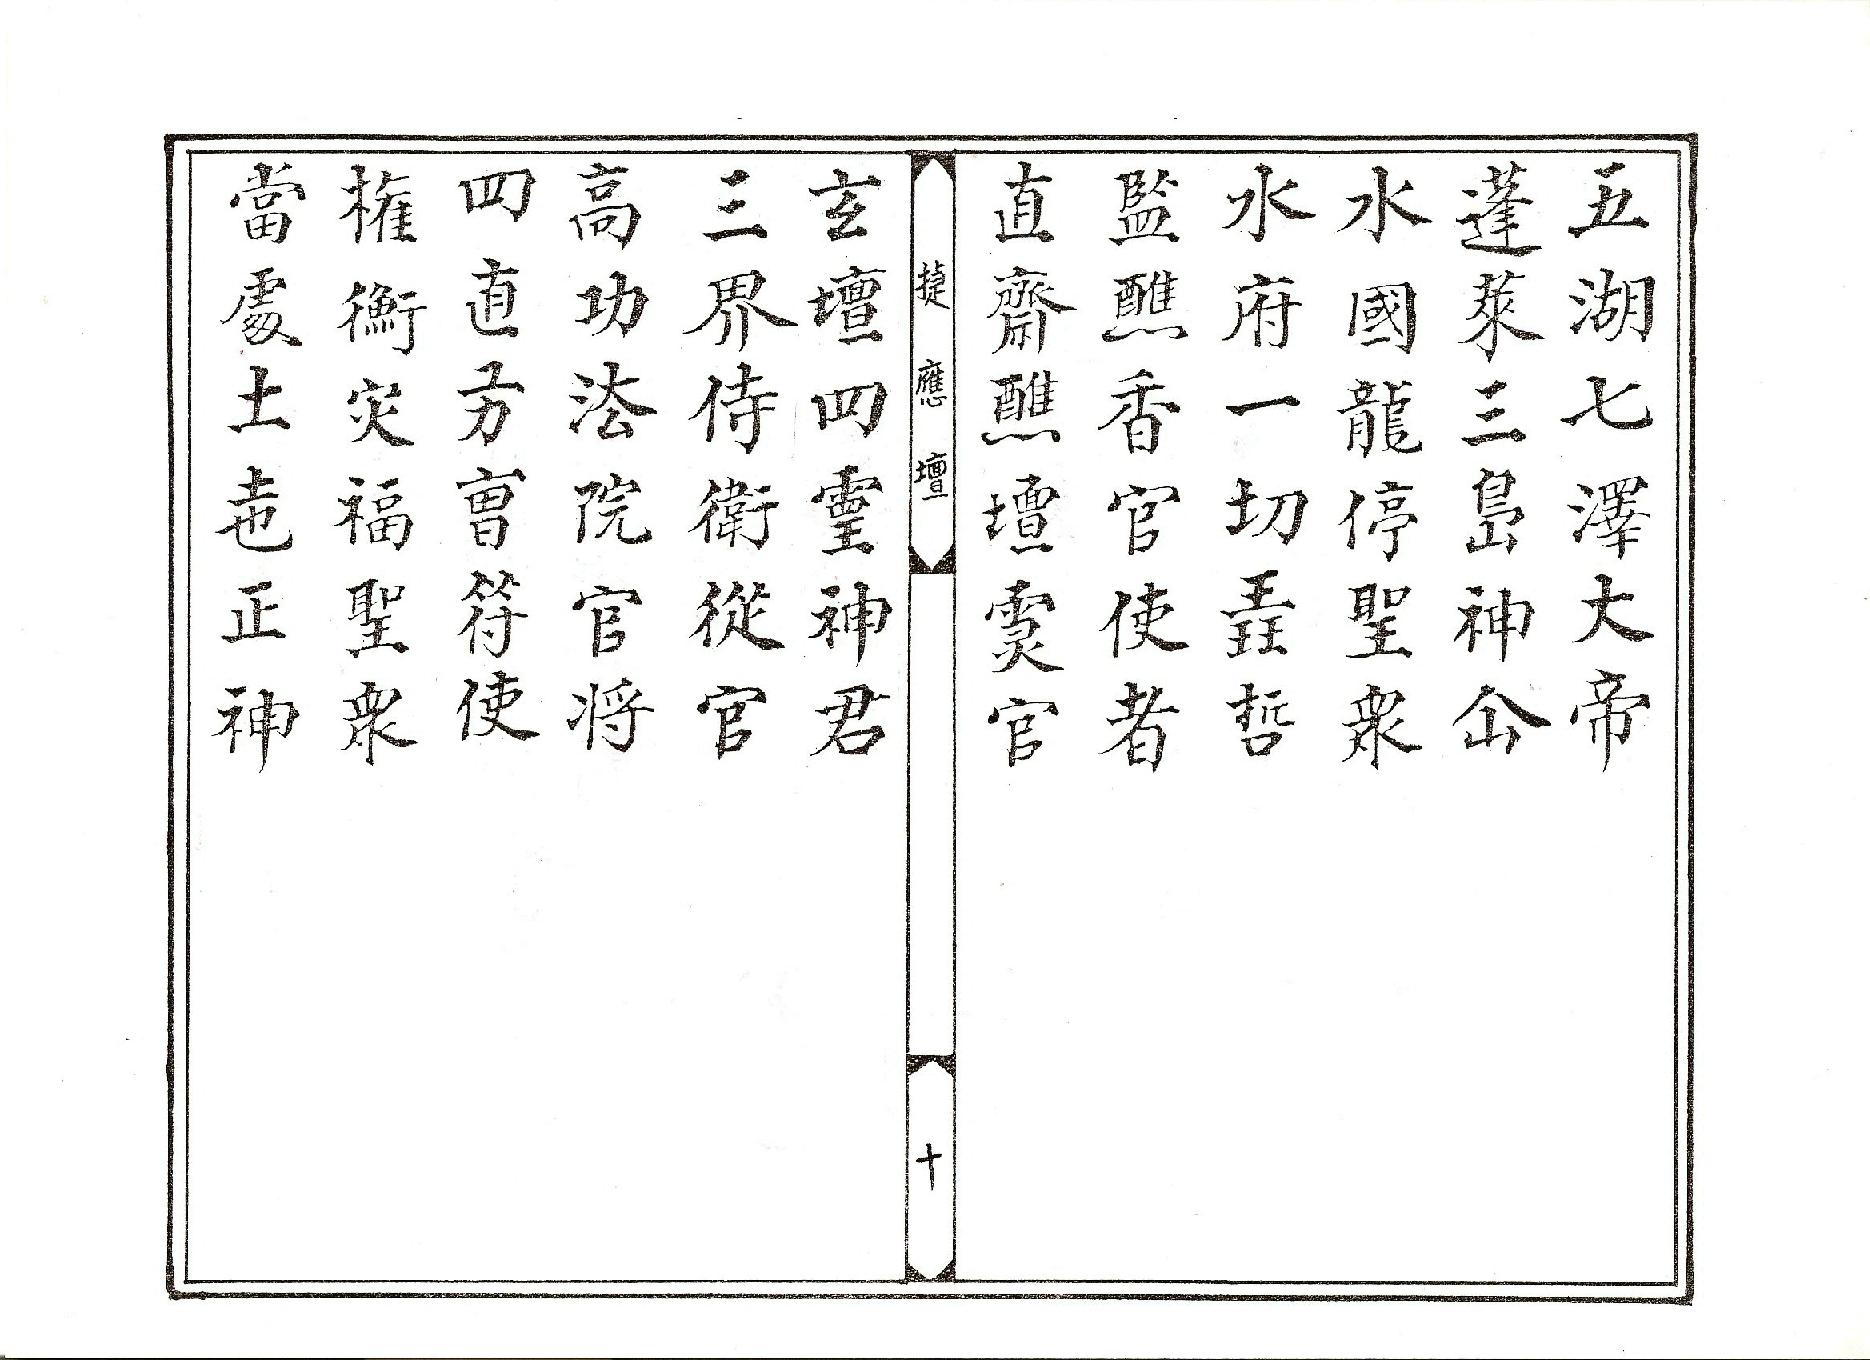 五湖七澤大帝
蓬萊三島神仚
水國龍停聖衆
水府一切哲
監醮香官使者
直齋醮壇官
捷應壇
十
玄壇四神君
三界侍衛從官
高功法院官将
四直方曺符使
権衡灾福聖衆
當處土地正神